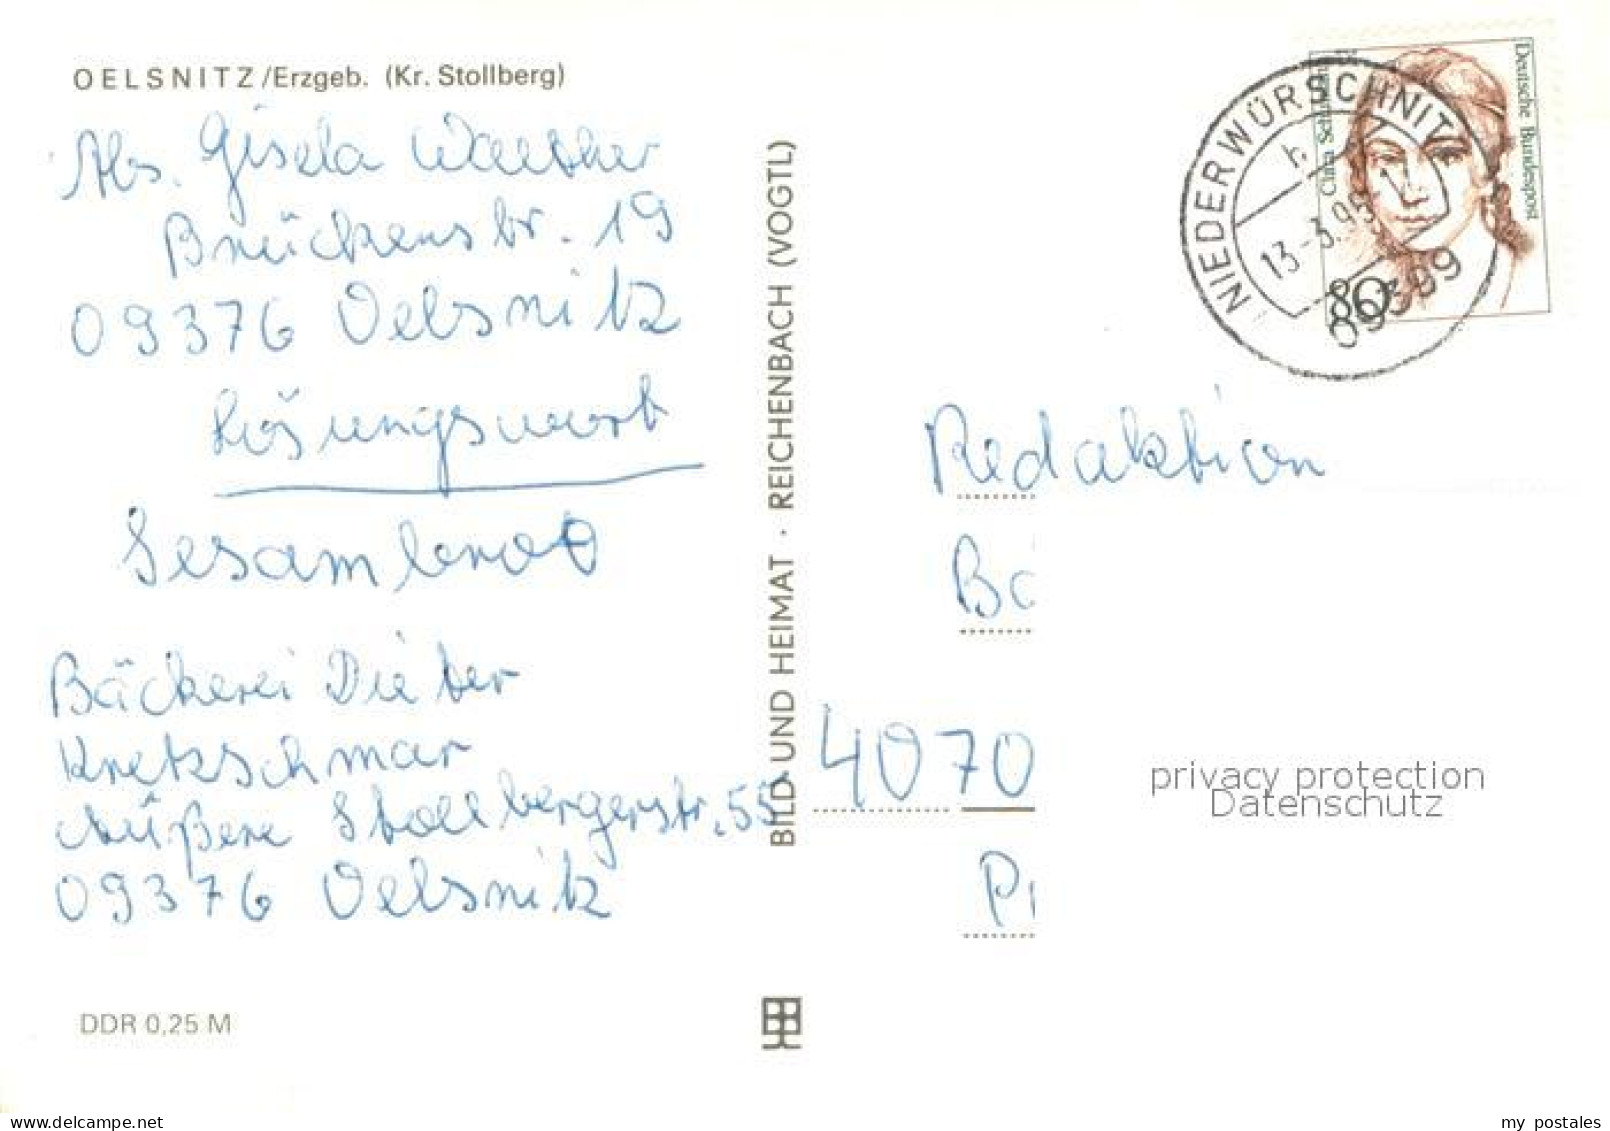 OELSNITZ/Erzgeb. (Kr. Stollberg)
Abs. Gisela Walther
Brückenstr. 19
09376 Oelsnitz
Lösungswort
Sesambrot
Bäckerei Dieter
Kretzschmar
Äußere Stollbergerstr. 55
09376 Oelsnitz
DDR 0,25 M
BILD UND HEIMAT · REICHENBACH (VOGTL)
Deutsche Bundespost
Clara Schumann
80
NIEDERWÜRSCHNITZ
13.-3.95
h
09399
Redaktion
Bä
4070
privacy protection
Datenschutz
delcampe.net
my_postales